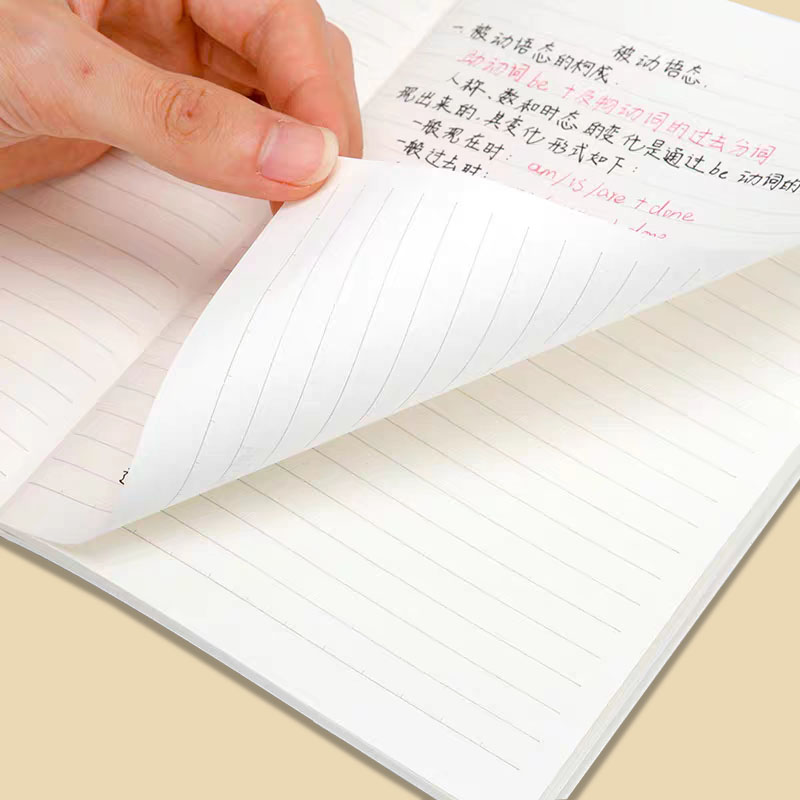 被动语态.
一.被动语态的构成.
助动词be +及物动词的过去分词
人称、数和时态的变化是通过be 动词的
现出来的,其变化形式如下:
一般现在时: am/is/are + done
一般过去时: